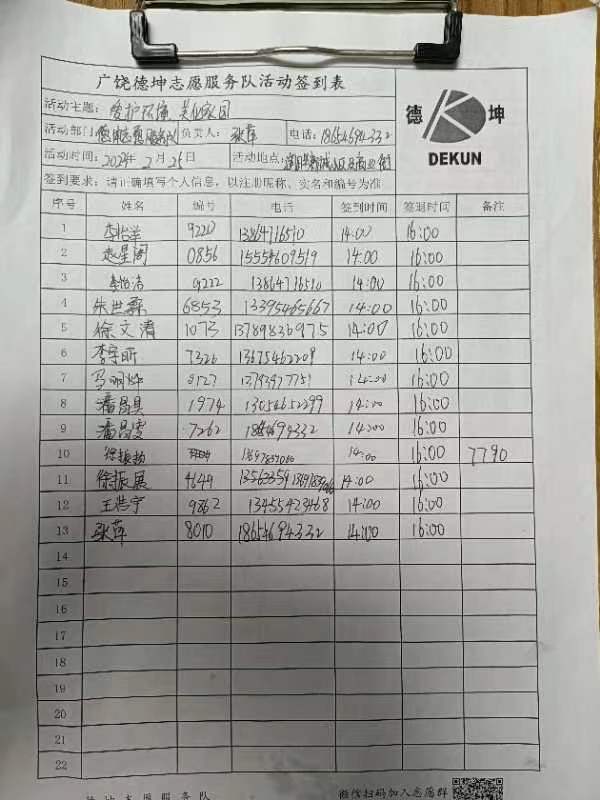 广饶德坤志愿服务队活动签到表
德 坤
DEKUN
活动主题：爱护环境 美化家园
活动部门 德坤志愿服务队 负责人：张萍 电话：18654694332
活动时间：2024年2月25日 活动地点：
签到要求：请正确填写个人信息，以注册昵称、实名和编号为准
序号 姓名 编号 电话 签到时间 签退时间 备注
1 李怡洋 9220 13864716510 14:00 16:00
2 赵星阁 0856 15554609519 14:00 16:00
3 李怡洁 9222 13864716510 14:00 16:00
4 朱世霖 6853 13395465667 14:00 16:00
5 徐文清 1073 13789836975 14:00 16:00
6 李宇昕 7326 13675462209 14:00 16:00
7 14:00 16:00
8 潘昌昊 1974 13054652299 14:00 16:00
9 潘昌雯 7262 18654694332 14:00 16:00
10 徐振勃 14:00 16:00 7790
11 徐振展 4649 14:00 16:00
12 王浩宇 9862 13455423468 14:00 16:00
13 张萍 8010 18654694332 14:00 16:00
14
15
16
17
18
19
20
21
22
志愿服务队 微信扫码加入志愿群